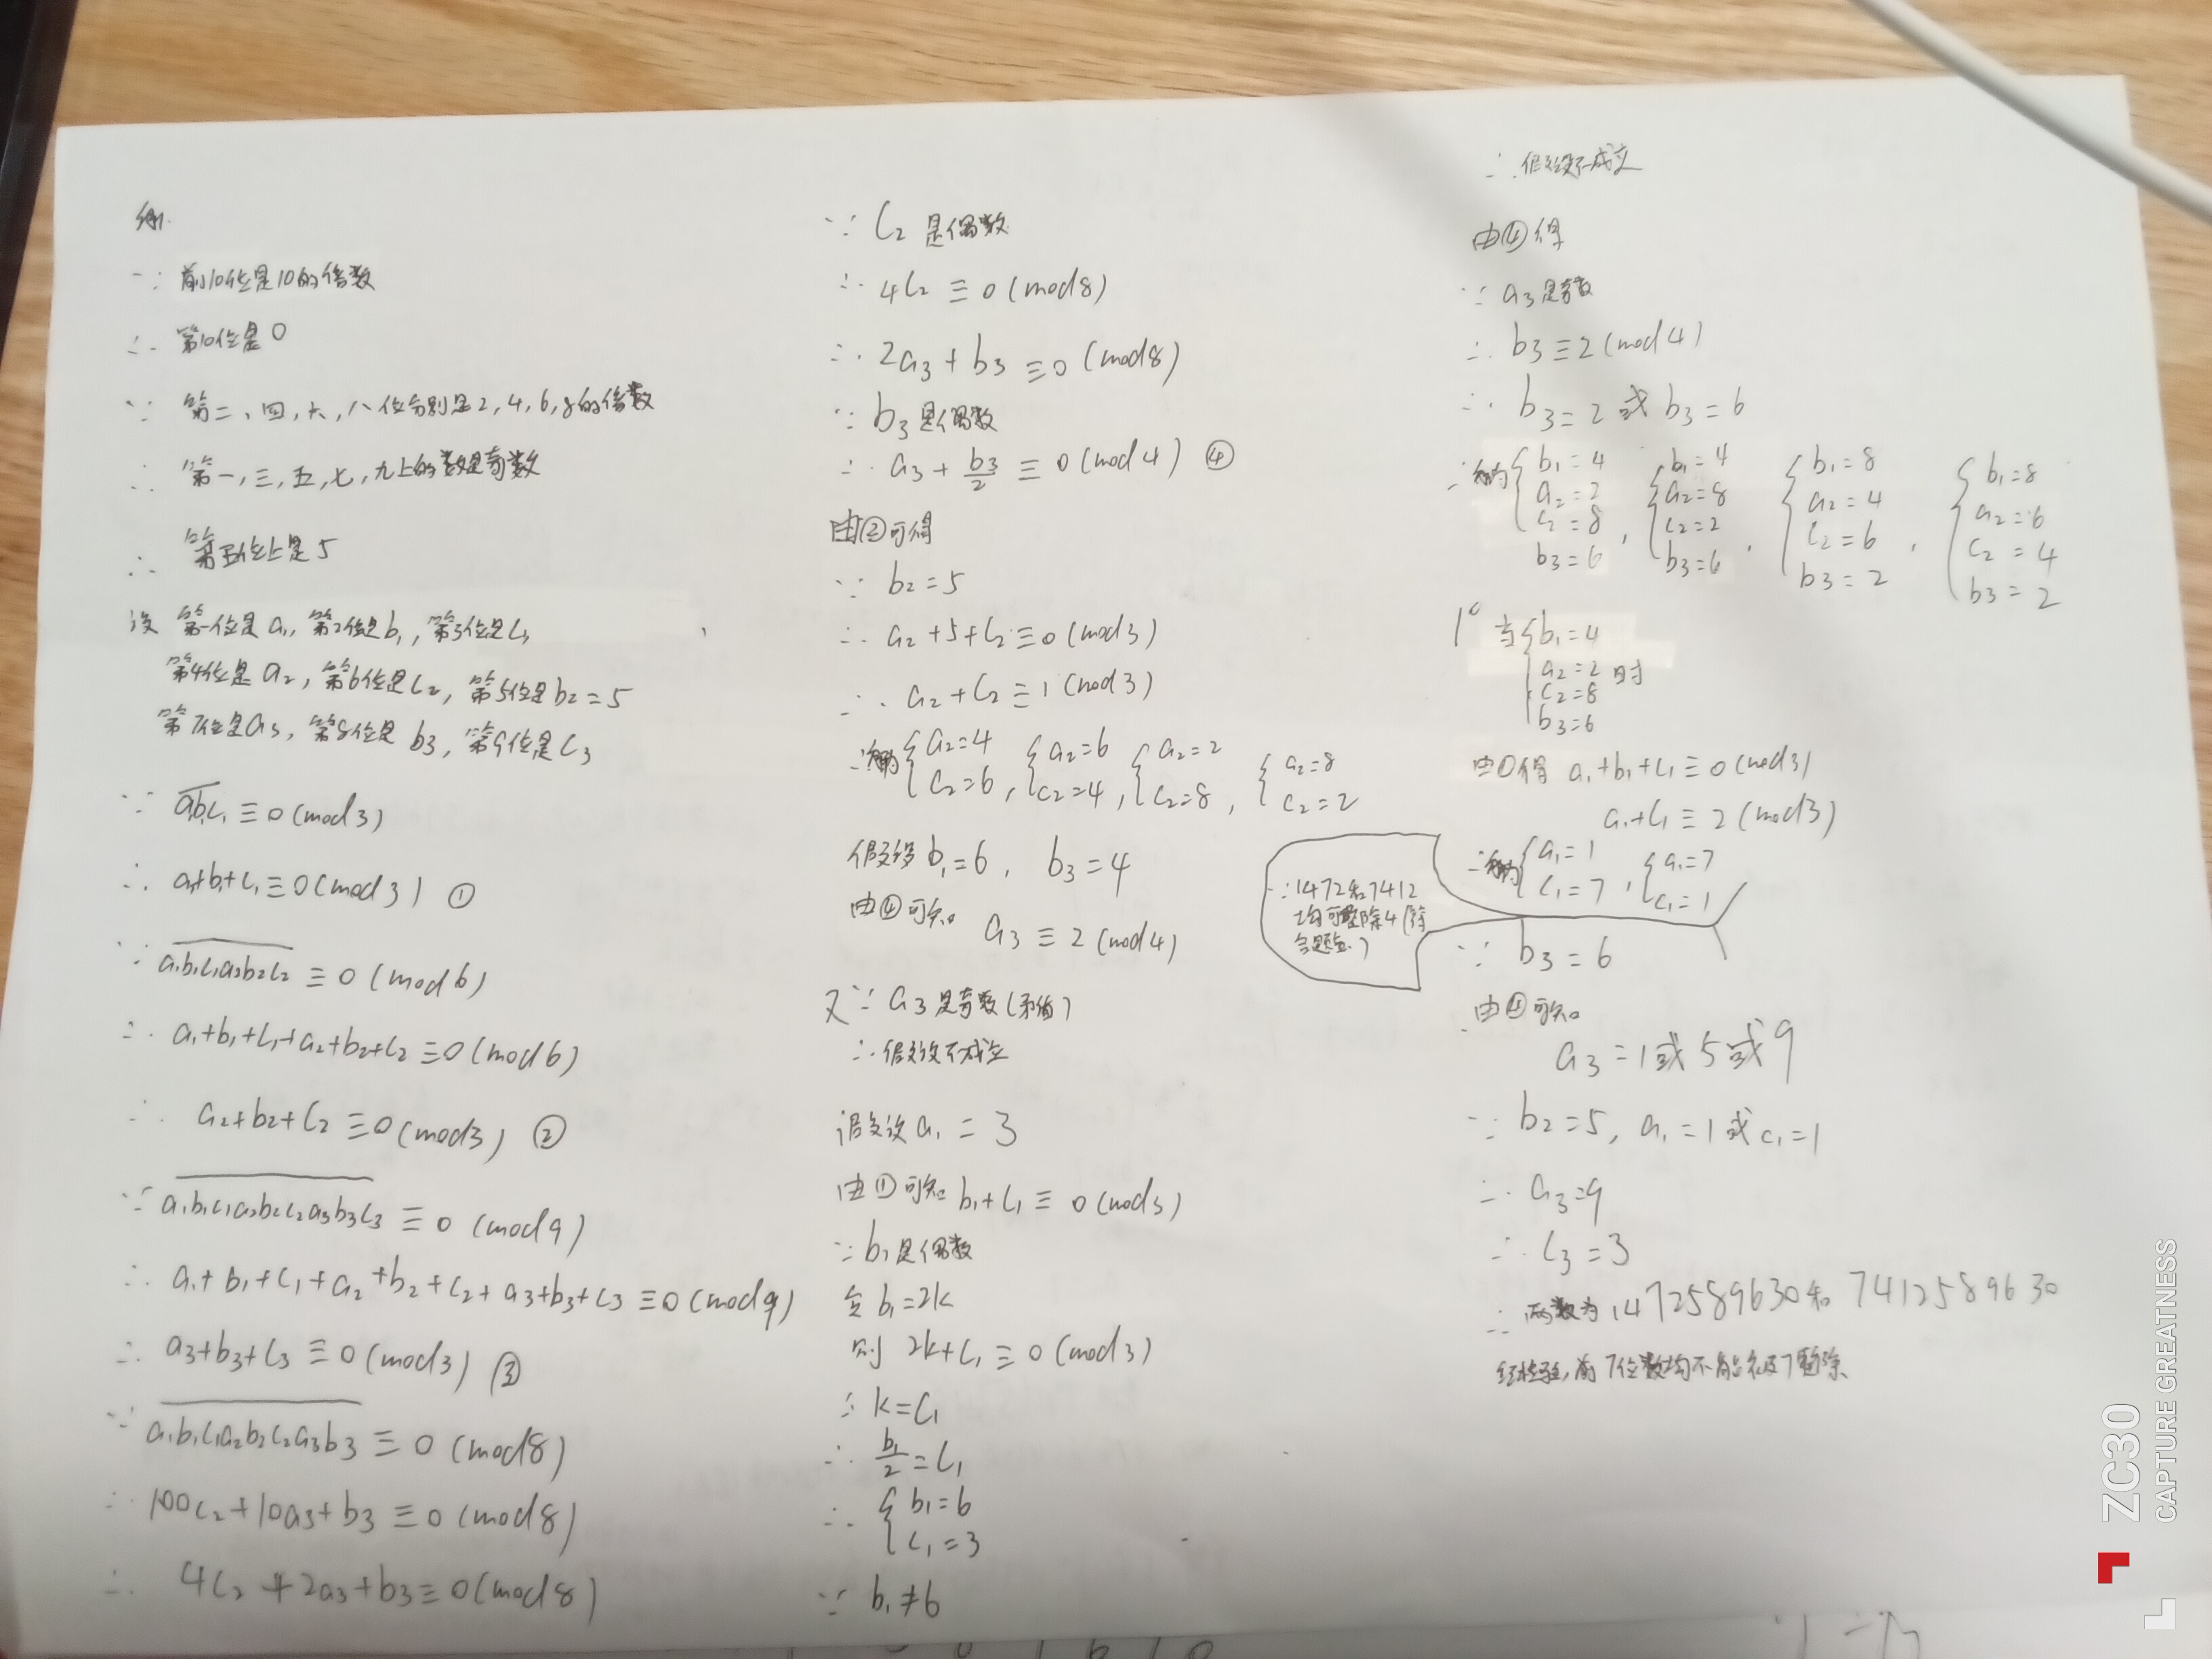 解.
∵ 前10位是10的倍数
∴ 第10位是0
∵ 第二、四、六、八位分别是2,4,6,8的倍数
∴ 第一,三,五,七,九上的数是奇数
∴ 第五位上是5
设 第一位是a₁, 第2位是b₁, 第3位是c₁
第4位是a₂, 第6位是c₂, 第5位是b₂=5
第7位是a₃, 第8位是b₃, 第9位是c₃
∵ a₁b₁c₁≡0(mod3)
∴ a₁+b₁+c₁≡0(mod3) ①
∵ a₁b₁c₁a₂b₂c₂≡0(mod6)
∴ a₁+b₁+c₁+a₂+b₂+c₂≡0(mod6)
∴ a₂+b₂+c₂≡0(mod3) ②
∵ a₁b₁c₁a₂b₂c₂a₃b₃c₃≡0 (mod9)
∴ a₁+b₁+c₁+a₂+b₂+c₂+a₃+b₃+c₃≡0(mod9)
∴ a₃+b₃+c₃≡0(mod3) ③
∵ a₁b₁c₁a₂b₂c₂a₃b₃≡0 (mod8)
∴ 100c₂+10a₃+b₃≡0(mod8)
∴ 4c₂+2a₃+b₃≡0(mod8)
∵ c₂是偶数
∴ 4c₂≡0(mod8)
∴ 2a₃+b₃≡0(mod8)
∵ b₃是偶数
∴ a₃+b₃/2≡0(mod4) ④
由②可得
∵ b₂=5
∴ a₂+5+c₂≡0(mod3)
∴ a₂+c₂≡1(mod3)
∴ {a₂=4 {a₂=6 {a₂=2 {a₂=8
c₂=6, c₂=4, c₂=8, c₂=2
假设b₁=6, b₃=4
由④可知
a₃≡2(mod4)
又∵ a₃是奇数(矛盾)
∴假设不成立
假设a₁=3
由①可知 b₁+c₁≡0(mod3)
∵b₁是偶数
令b₁=2k
则 2k+c₁≡0(mod3)
∴ k=c₁
∴ b₁/2=c₁
∴ {b₁=6
c₁=3
∵ b₁≠6
∴假设不成立
由④得
∵ a₃是奇数
∴ b₃≡2(mod4)
∴ b₃=2或b₃=6
∴ {b₁=4 {b₁=4 {b₁=8 {b₁=8
a₂=2 a₂=8 a₂=4 a₂=6
c₂=8 c₂=2 c₂=6 c₂=4
b₃=6, b₃=6, b₃=2, b₃=2
1° 当{b₁=4
a₂=2 时
c₂=8
b₃=6
由①得 a₁+b₁+c₁≡0(mod3)
a₁+c₁≡2(mod3)
∴ {a₁=1 {a₁=7
c₁=7, c₁=1
∵1472和7412
均可整除4(符
合题意.)
∵ b₃=6
由④可知
a₃=1或5或9
∵ b₂=5, a₁=1或c₁=1
∴ a₃=9
∴ c₃=3
∴ 两数为1472589630和7412589630
经检验,前7位数均不能被7整除
ZC30
CAPTURE GREATNESS